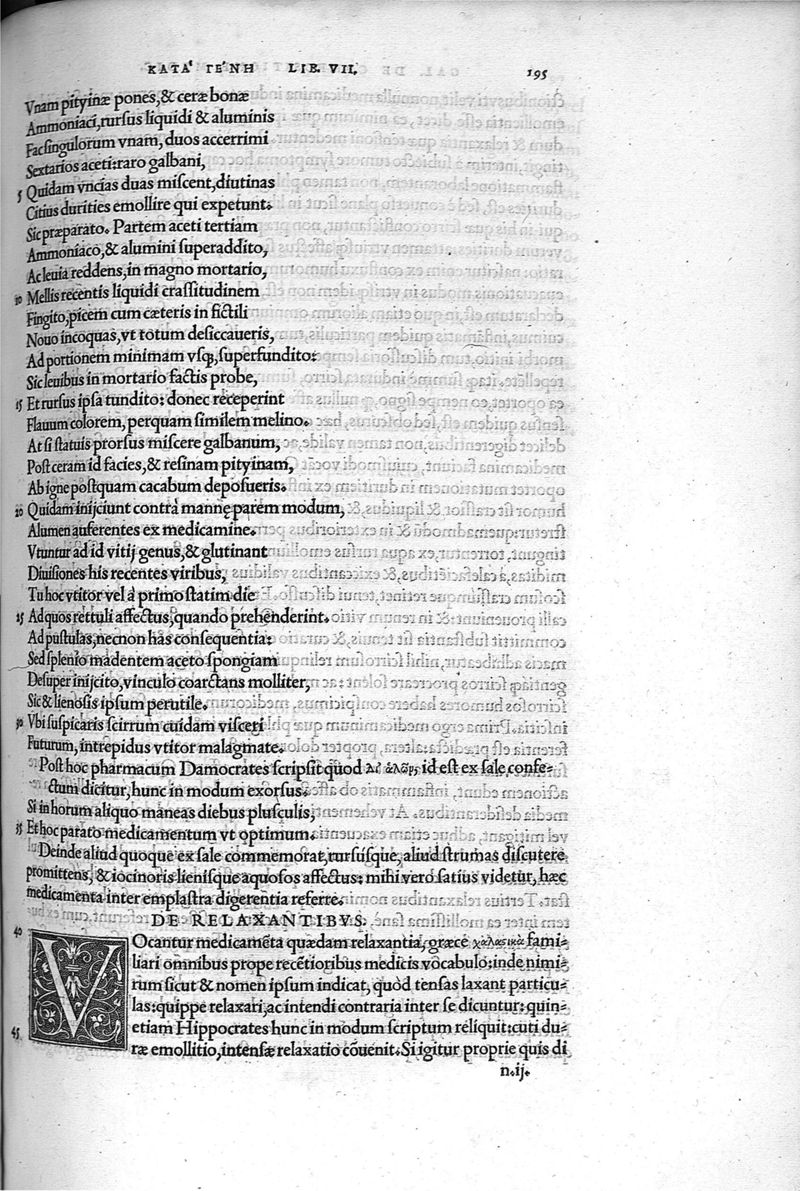 ΚΑΤΑ' ΓΕ'ΝΗ LIB. VII. 195
Vnam pityinæ pones, & ceræ bonæ
Ammoniaci, rursus liquidi & aluminis
Fac singulorum vnam, duos accerrimi
Sextarios aceti: raro galbani,
5 Quidam vncias duas miscent, diutinas
Citius durities emollire qui expetunt.
Sic præparato. Partem aceti tertiam
Ammoniaco, & alumini superaddito,
Ac leuia reddens, in magno mortario,
10 Mellis recentis liquidi crassitudinem
Fingito, picem cum cæteris in fictili
Nouo incoquas, vt totum desiccaueris,
Ad portionem minimam vsq;, superfundito:
Sic leuibus in mortario factis probe,
15 Et rursus ipsa tundito: donec receperint
Flauum colorem, perquam similem melino.
At si statuis prorsus miscere galbanum,
Post ceram id facies, & resinam pityinam,
Ab igne postquam cacabum deposueris.
20 Quidam inijciunt contrà mannę parem modum,
Alumen auferentes ex medicamine.
Vtuntur ad id vitij genus, & glutinant
Diuisiones his recentes viribus,
Tu hoc vtitor vel à primo statim die
25 Ad quos rettuli affectus, quando prehenderint.
Ad pustulas, necnon has consequentia:
Sed splenio madentem aceto spongiam
Desuper inijcito, vinculo coarctans molliter,
Sic & lienosis ipsum perutile.
30 Vbi suspicaris scirrum cuidam visceri
Futurum, intrepidus vtitor malagmate.
Post hoc pharmacum Damocrates scripsit quod δι' ἁλῶν, id est ex sale confe-
ctum dicitur, hunc in modum exorsus.
Si in horum aliquo maneas diebus plusculis,
35 Et hoc parato medicamentum vt optimum.
Deinde aliud quoque ex sale commemorat, rursúsque, aliud strumas discutere
promittens, & iocinoris lienisque aquosos affectus: mihi vero satius videtur, hæc
medicamenta inter emplastra digerentia referre.
DE RELAXANTIBVS.
40 VOcantur medicamẽta quædam relaxantia, græcè χαλαστικὰ fami-
liari omnibus prope recẽtioribus medicis vocabulo: inde nimi-
rum sicut & nomen ipsum indicat, quòd tensas laxant particu-
las: quippe relaxari, ac intendi contraria inter se dicuntur: quin-
etiam Hippocrates hunc in modum scriptum reliquit: cuti du-
45 ræ emollitio, intensæ relaxatio cõuenit. Si igitur proprie quis di
n.ij.